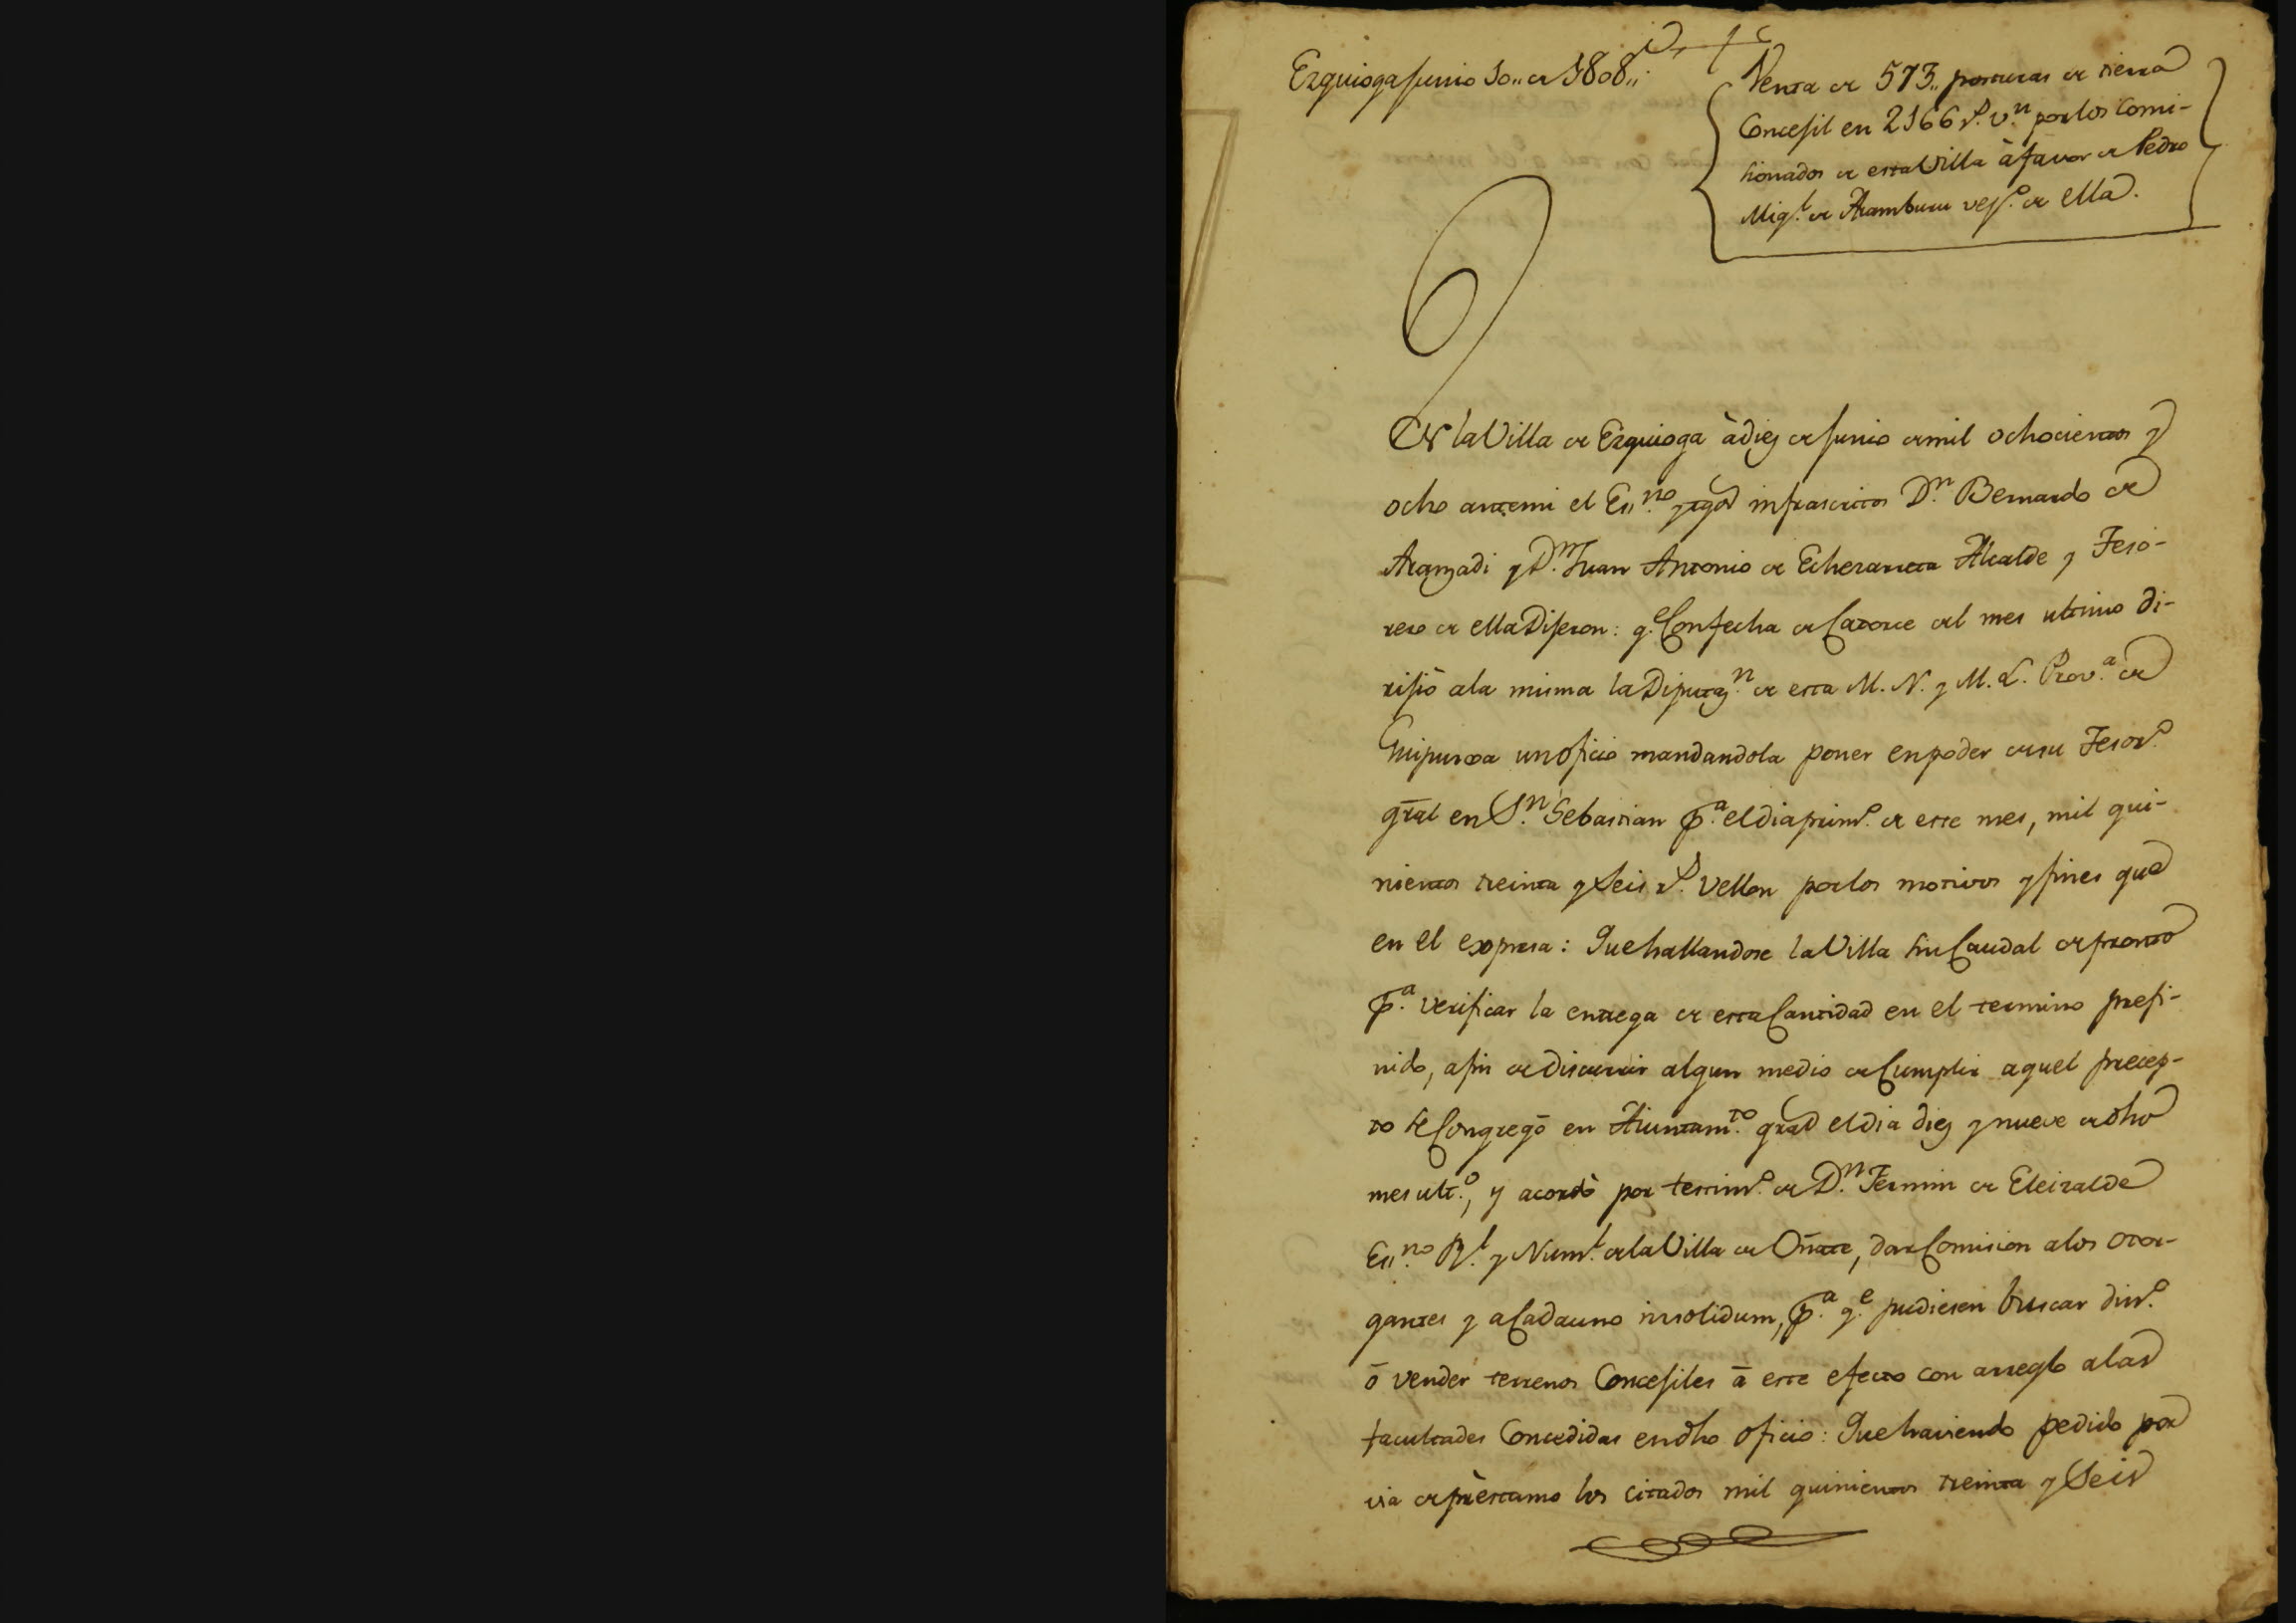 Ezquioga Junio 10,, de 1808,,
Venta de 573,, posturas de tierra
Concejil en 2166 r.s v.n por los Comi-
sionados de esta Villa à favor de Pedro
Mig.l de Aramburu vez.o de ella.
En la Villa de Ezquioga à diez de Junio de mil ochocientos y
ocho ante mi el Ess.no y tgos infrascritos D.n Bernardo de
Aranzadi y D.n Juan Antonio de Echezarreta Alcalde y Teso-
rero de ella Dijeron: q.e Con fecha de Catorce del mes ultimo di-
rijiò ala misma la Diputaz.n de esta M. N. y M. L. Prov.a de
Guipuzcoa un oficio mandandola poner en poder de su Tesor.o
gral en S.n Sebastian p.a el dia prim.o de este mes, mil qui-
nientos treinta y Seis r.s Vellon por los motivos y fines que
en el expresa: Que hallandose la Villa sin Caudal de pronto
p.a verificar la entrega de esta Cantidad en el termino prefi-
nido, afin de discurrir algun medio de Cumplir aquel precep-
to se Congregò en Aiuntam.to gral el dia diez y nueve de dho
mes ult.o, y acordò por testim.o de D.n Fermin de Eleizalde
Ess.no R.l y Num.l de la Villa de Oñate, dar Comision a los otor-
gantes y a Cada uno insolidum, p.a q.e pudiesen buscar din.o
ò vender terrenos Concejiles à este efecto con arreglo a las
facultades Concedidas en dho oficio: Que haviendo pedido por
via de prèstamo los citados mil quinientos treinta y Seis